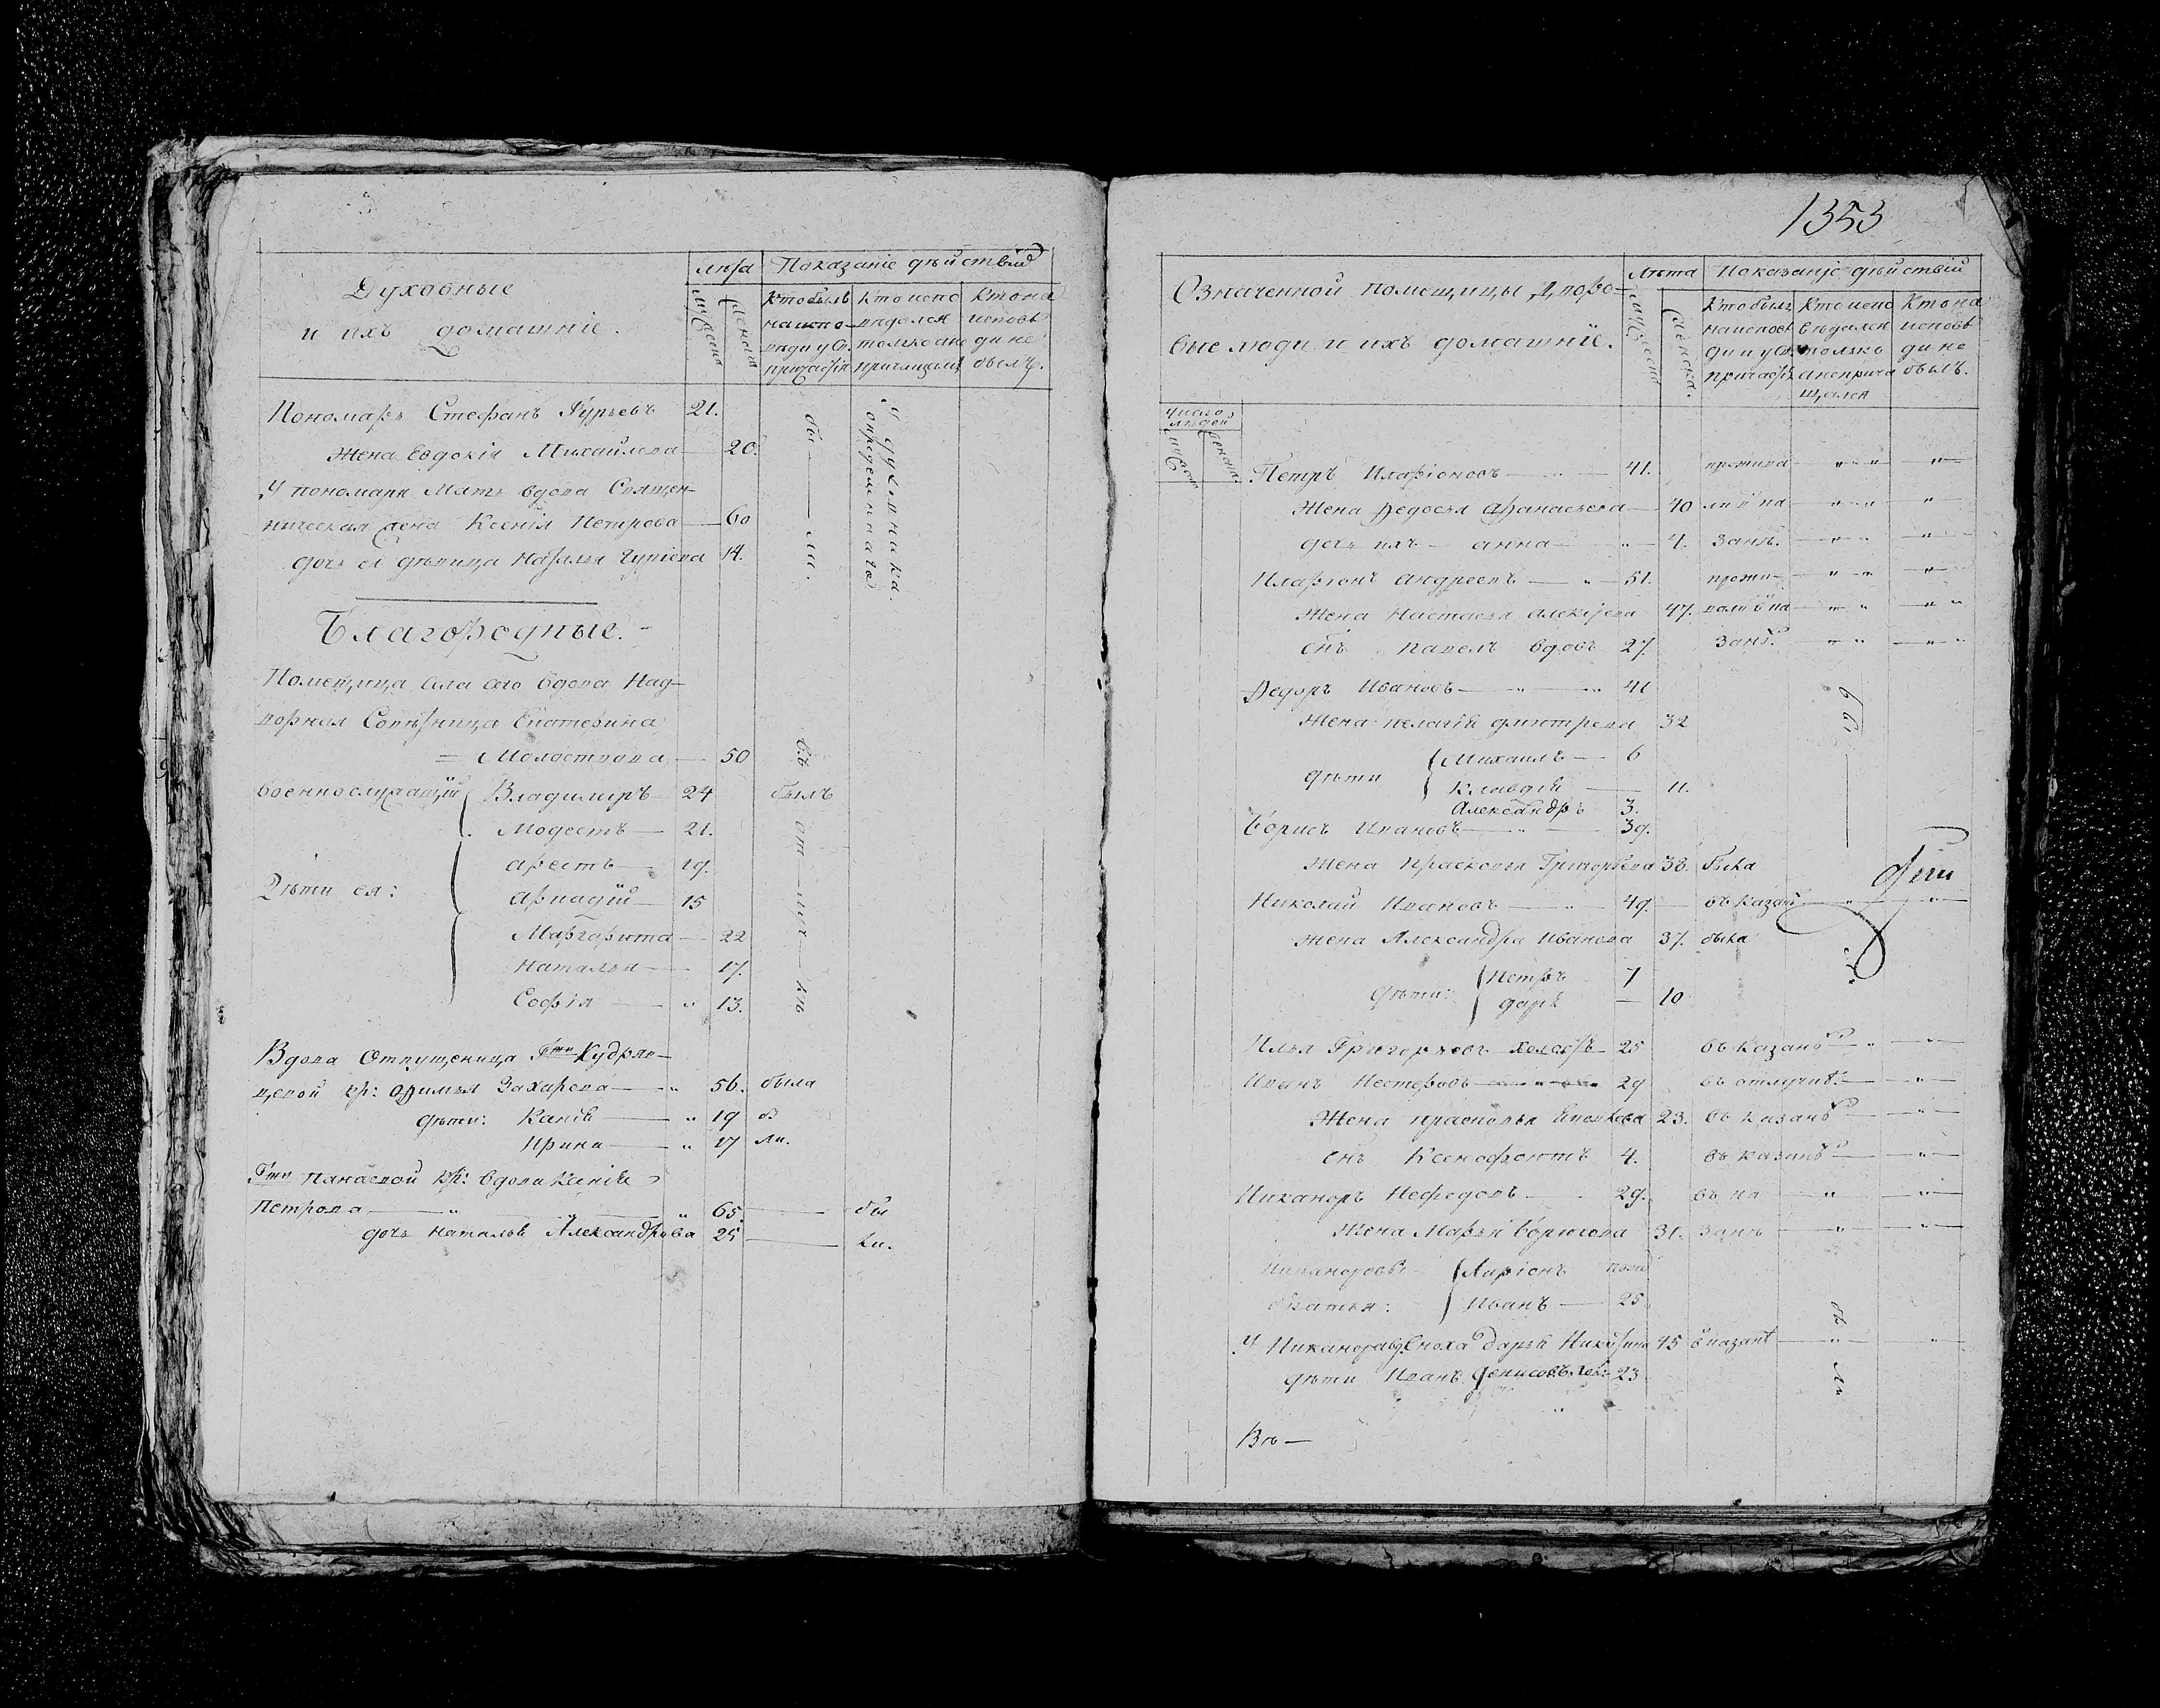 Духовные
и ихъ домашніе.
лѣта
Показаніе дѣйствій
мужеска
женска
Кто былъ
на испо-
вѣди у Св.
причастія
Кто испо
вѣдался
только а не
причащался
Кто на
исповѣ
ди не
былъ.
Пономарь Стефанъ Гурьевъ 21.
Жена Евдокія Михайлова 20.
У пономаря Мать вдова Священ-
ническая жена Ксенія Петрова 60
дочь ея дѣвица Наталья Гуріева 14.
бы — ли.
У духовника
опредѣленнаго
Благородные.
Помещица села сего вдова Над-
ворная Совѣтница Екатерина
Молостовова 50
военнослужащій Владимиръ 24 былъ
Модестъ 21.
Дѣти ея:
Арестъ 19.
Аркадій 15
Маргорита 22
Наталья 17.
Софія 13.
Вдова Отпущеница Гжи Кудряв-
цевой кр: Афимья Захарова 56. была
дѣти: Ксенія 19 б
Ирина 17 ли.
Гжи Панаевой кр: вдова Ксенія
Петрова 65. бы
дочь Наталья Александрова 25 ли.
1353
Означенной помещицы Дворо-
вые люди и ихъ домашніе.
Лѣта
Показаніе дѣйствій
мужеска
женска.
Кто былъ
на исповѣ
ди и у Св.
причастія
Кто испо
вѣдался
только
а не прича
щался
Кто на
исповѣ
ди не
былъ.
Число
людей
Петръ Иларіоновъ 41. прожива
Жена Федосья Афанасьева 40 ли в Ка
дочь ихъ Анна 4. занѣ.
Иларіонъ Андреевъ 51. прожи-
Жена Настасья Алексѣева 47. вали в Ка
снъ Павелъ вдовъ 27. занѣ.
Федоръ Ивановъ 41
Жена Пелагія Дмитрева 32
дѣти Михаилъ 6
Клавдія 11.
Александръ 3.
Борисъ Ивановъ 39.
Жена Прасковья Григорьева 38. была
Николай Ивановъ 49. въ Казан
Жена Александра Иванова 37. была
дѣти: Петръ 7
Дарья 10
Илья Григорьевъ холостъ 25 въ Казанѣ
Иванъ Нестеровъ 29 въ отлучкѣ.
Жена Прасковья 23. въ Казанѣ
снъ Ксенофонтъ 4. въ Казанѣ
Никаноръ Нефедовъ 29. въ Ка
Жена Марья Борисова 31. занѣ
Никаноровы Ларіонъ
братья: Иванъ 25
У Никанора Сноха Дарья Никитина 45 в Казанѣ
дѣти Иванъ Денисовъ 23
Въ —